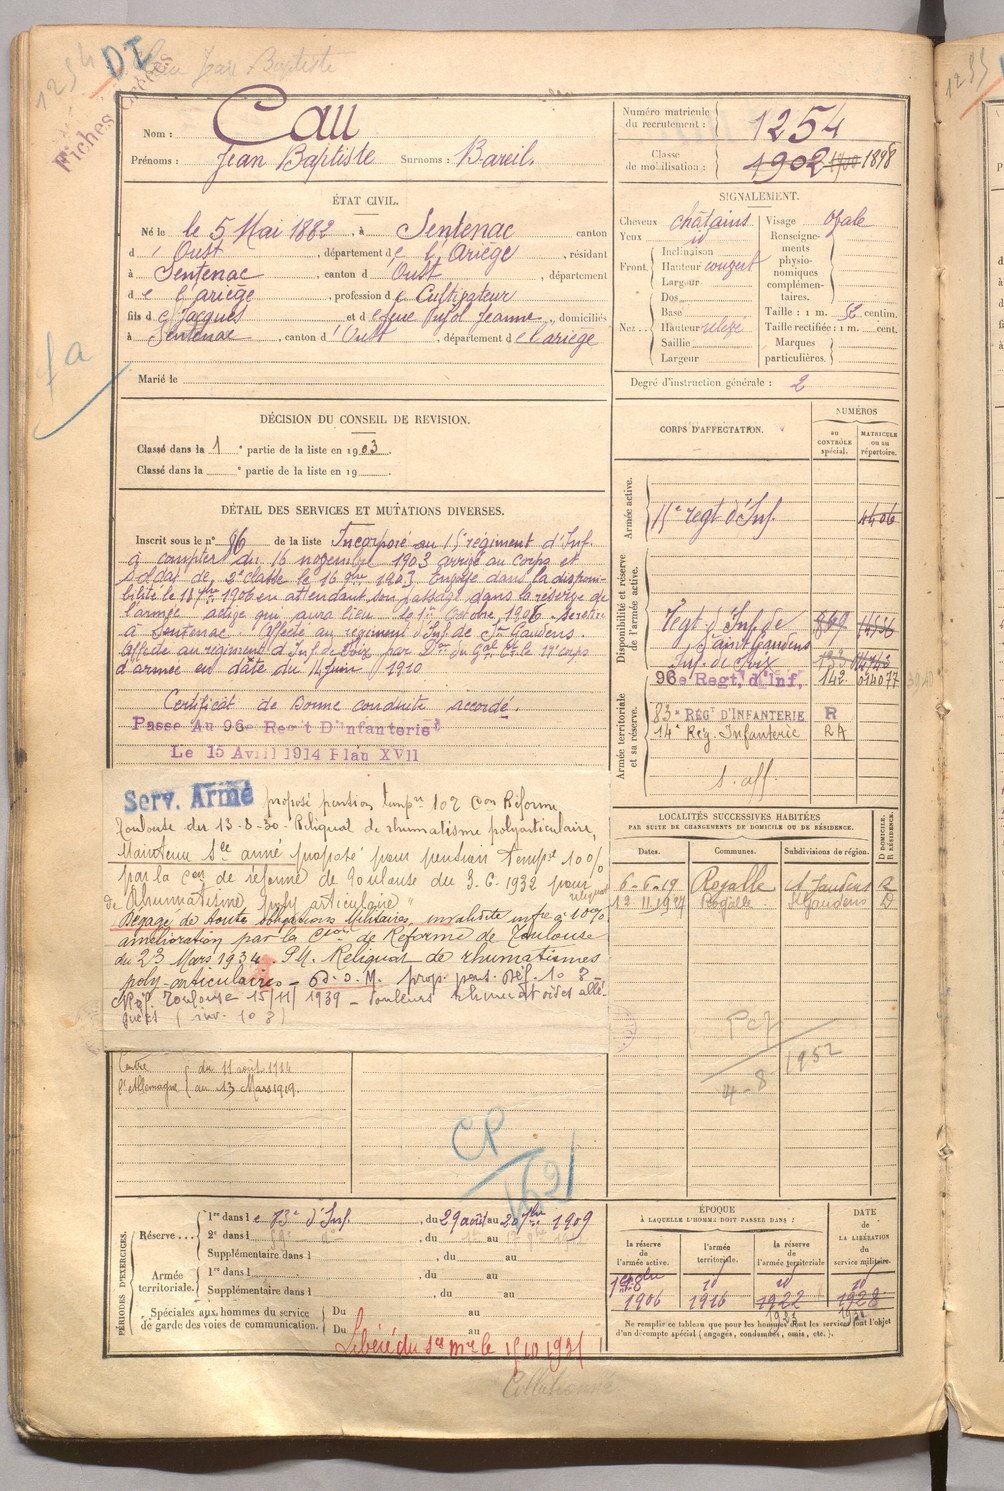 1254 DI Cau Jean Baptiste
Fiches
Nom : Cau
Prénoms : Jean Baptiste Surnoms : Bareil.
Numéro matricule du recrutement : 1254
Classe de mobilisation : 1902 1900 1898
ÉTAT CIVIL.
Né le 5 Mai 1882, à Sentenac canton
d' Oust, département de l'Ariège, résidant
à Sentenac, canton d' Oust, département
de l'ariège, profession de Cultivateur
fils de Jacques et de feue Pujol Jeanne, domiciliés
à Sentenac, canton d' Oust, département de l'ariège
Marié le
SIGNALEMENT.
Cheveux châtains
Yeux id
Front. Inclinaison
Hauteur couvert
Largeur
Nez. Dos
Base
Hauteur relevé
Saillie
Largeur
Visage ovale
Renseignements physionomiques complémentaires.
Taille : 1 m. 52 centim.
Taille rectifiée : 1 m. cent.
Marques particulières.
Degré d'instruction générale : 2
DÉCISION DU CONSEIL DE REVISION.
Classé dans la 1e partie de la liste en 1903
Classé dans la e partie de la liste en 19
DÉTAIL DES SERVICES ET MUTATIONS DIVERSES.
Inscrit sous le n° 86 de la liste Incorporé au 15e régiment d'Inf.
à compter du 16 novembre 1903 arrivé au corps et
Soldat de 2e classe le 16 9bre 1903. Envoyé dans la disponi-
bilité le 18 7bre 1906 en attendant son passage dans la réserve de
l'armée active qui aura lieu le 1er Octobre 1906 se retire
à Sentenac. Affecté au régiment d'Inf. de St Gaudens.
Affecté au régiment d'Inf. de Foix par Don du Gal Ct le 17e corps
d'armée en date du 14 juin 1910
Certificat de bonne conduite accordé.
Passe Au 96e Reg't D'Infanterie
Le 15 Avril 1914 Plan XVII
Serv. Armé proposé pension tempre 10% Con Réforme
Toulouse du 13-8-30. Reliquat de rhumatisme polyarticulaire,
Maintenu Sce armé proposé pour pension Tempre 10%
par la Con de réforme de Toulouse du 3-6-1932 pour reliquat
de Rhumatisme poly articulaire
Dégagé de toute obligations Militaires, invalidité infre à 10%
amélioration par la Cion de Réforme de Toulouse
du 23 Mars 1934. PM. Reliquat de rhumatismes
poly-articulaires - D.O.M. prop. pens. Déf. 10%
Réf. Toulouse 15/11/1939 - douleurs rhumatoïdes allé-
guées (inv. 10%)
Contre l'Allemagne du 11 août 1914
au 13 Mars 1919.
CP
CORPS D'AFFECTATION.
NUMÉROS
au CONTRÔLE spécial.
MATRICULE ou au répertoire.
Armée active.
15e regt d'Inf. 4406
Disponibilité et réserve de l'armée active.
Régt d'Inf. de Saint Gaudens 869
Inf. de Foix 133
96e Regt, d'Inf, 142 014077
Armée territoriale et sa réserve.
83e RÉGt D'INFANTERIE R
14e Rég. Infanterie RA
S. aff
LOCALITÉS SUCCESSIVES HABITÉES
PAR SUITE DE CHANGEMENTS DE DOMICILE OU DE RÉSIDENCE.
Dates. Communes. Subdivisions de région. D DOMICILE. R RÉSIDENCE.
6-6-19 Rogalle St Gaudens R
12 11 1927 Rogalle St Gaudens D
4-8 1952
PÉRIODES D'EXERCICES.
Réserve... 1re dans le 83e d'Inf. , du 29 août au 20 7bre 1909
2e dans l , du au
Supplémentaire dans l , du au
Armée territoriale. 1re dans l , du au
Supplémentaire dans l , du au
Spéciales aux hommes du service de garde des voies de communication. Du au
Du au
Libéré du Sce Mre le 15.10.1931
ÉPOQUE
À LAQUELLE L'HOMME DOIT PASSER DANS :
la réserve de l'armée active.
l'armée territoriale.
la réserve de l'armée territoriale
DATE de LA LIBÉRATION du service militaire.
1er 8bre id id id
1906 1916 1922 1928
Ne remplir ce tableau que pour les hommes dont les services font l'objet
d'un décompte spécial (engagés, condamnés, omis, etc.).
Collationné